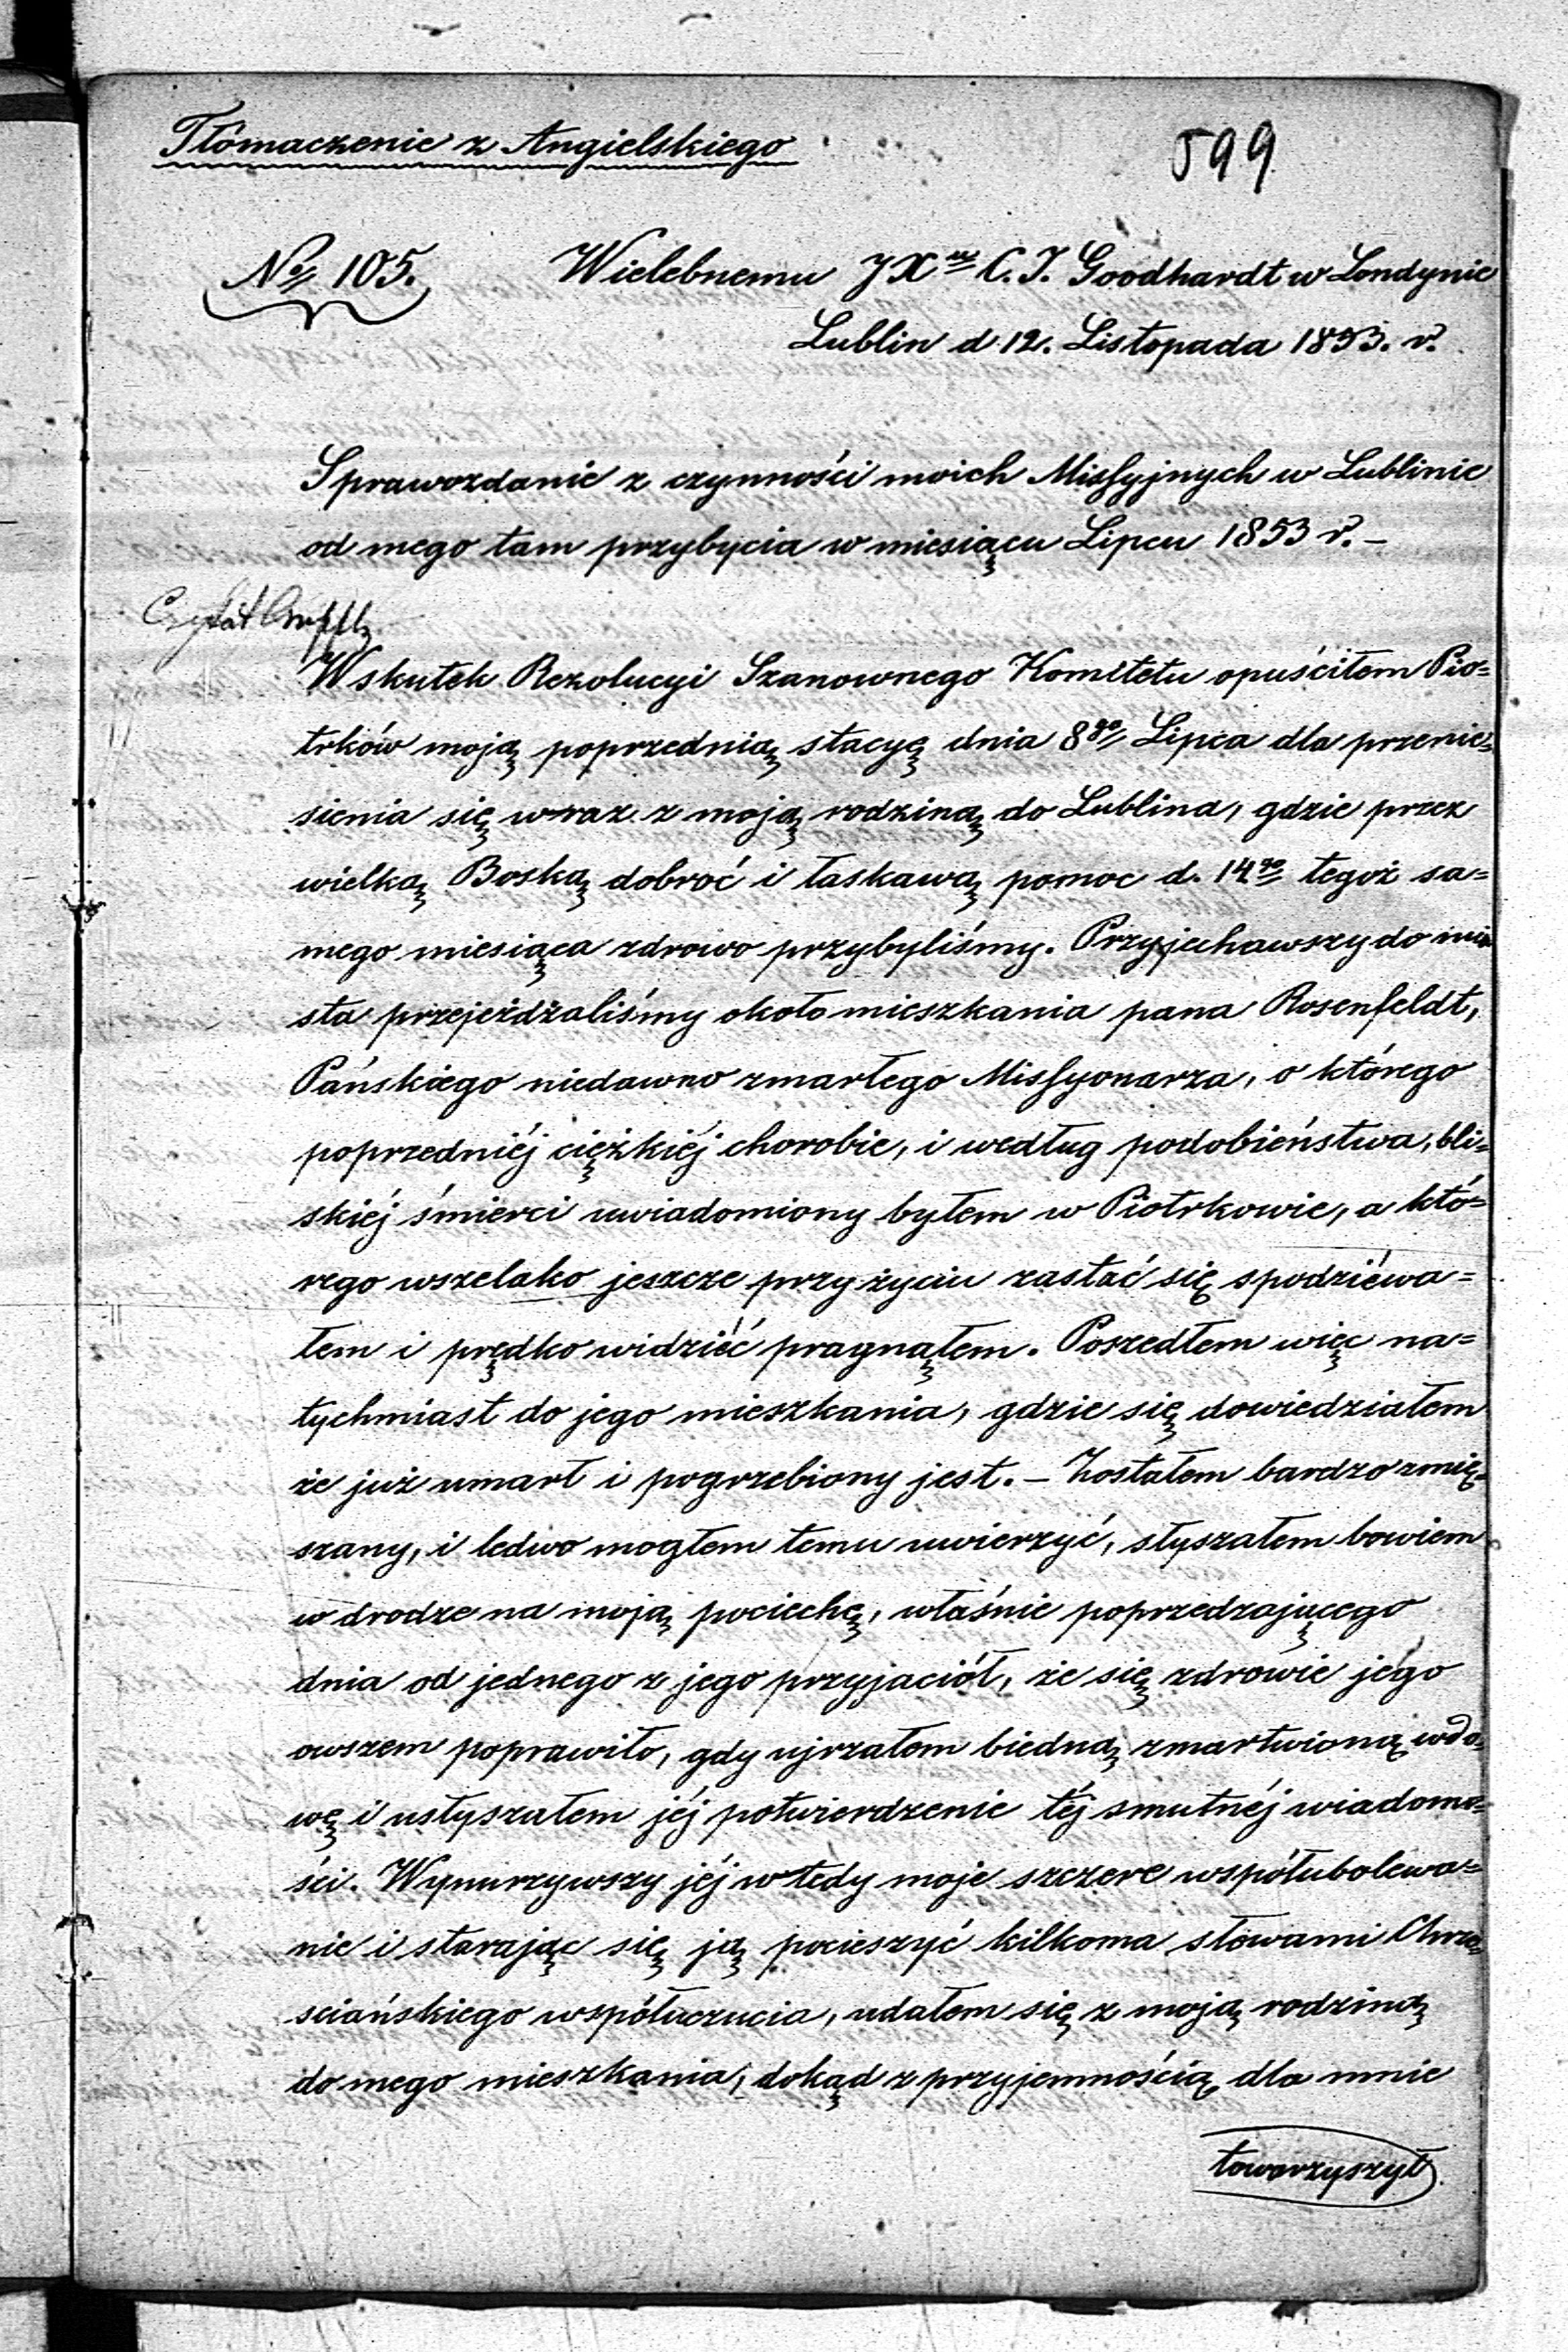 Tłómaczenie z Angielskiego
599
No 105.
Wielebnemu JXu C. J. Goodhardt w Londynie
Lublin d 12. Listopada 1853. r.
Sprawozdanie z czynności moich Missyjnych w Lublinie
od mego tam przybycia w miesiącu Lipcu 1853 r. –
Czytał
Wskutek Rezolucyi Szanownego Komitetu opuściłem Pio=
trków moją poprzednią stacyę dnia 8go Lipca dla przenie=
sienia się wraz z moją rodziną do Lublina, gdzie przez
wielką Boską dobroć i łaskawą pomoc d. 14go tegoż sa=
mego miesiąca zdrowo przybyliśmy. Przyjechawszy do mia
sta przejeżdżaliśmy około mieszkania pana Rosenfeldt,
Pańskiego niedawno zmarłego Missyonarza, o którego
poprzedniéj ciężkiéj chorobie, i według podobieństwa, bli=
skiéj śmierci uwiadomiony byłem w Piotrkowie, a któ=
rego wszelako jeszcze przy życiu zastać się spodziéwa=
łem i prędko widziéć pragnąłem. Poszedłem więc na=
tychmiast do jego mieszkania, gdzie się dowiedziałem
że już umarł i pogrzebiony jest. – Zostałem bardzo zmię=
szany, i ledwo mogłem temu uwierzyć, słyszałem bowiem
w drodze na moją pociechę, właśnie poprzedzającego
dnia od jednego z jego przyjaciół, że się zdrowie jego
owszem poprawiło, gdy ujrzałem biedną zmartwioną wdo=
wę i usłyszałem jéj potwierdzenie téj smutnéj wiadomo=
ści. Wynurzywszy jéj wtedy moje szczere współubolewa=
nie i starając się ją pocieszyć kilkoma słowami Chrze=
sciańskiego współuczucia, udałem się z moją rodziną
do mego mieszkania, dokąd z przyjemnością dla mnie
towarzyszył